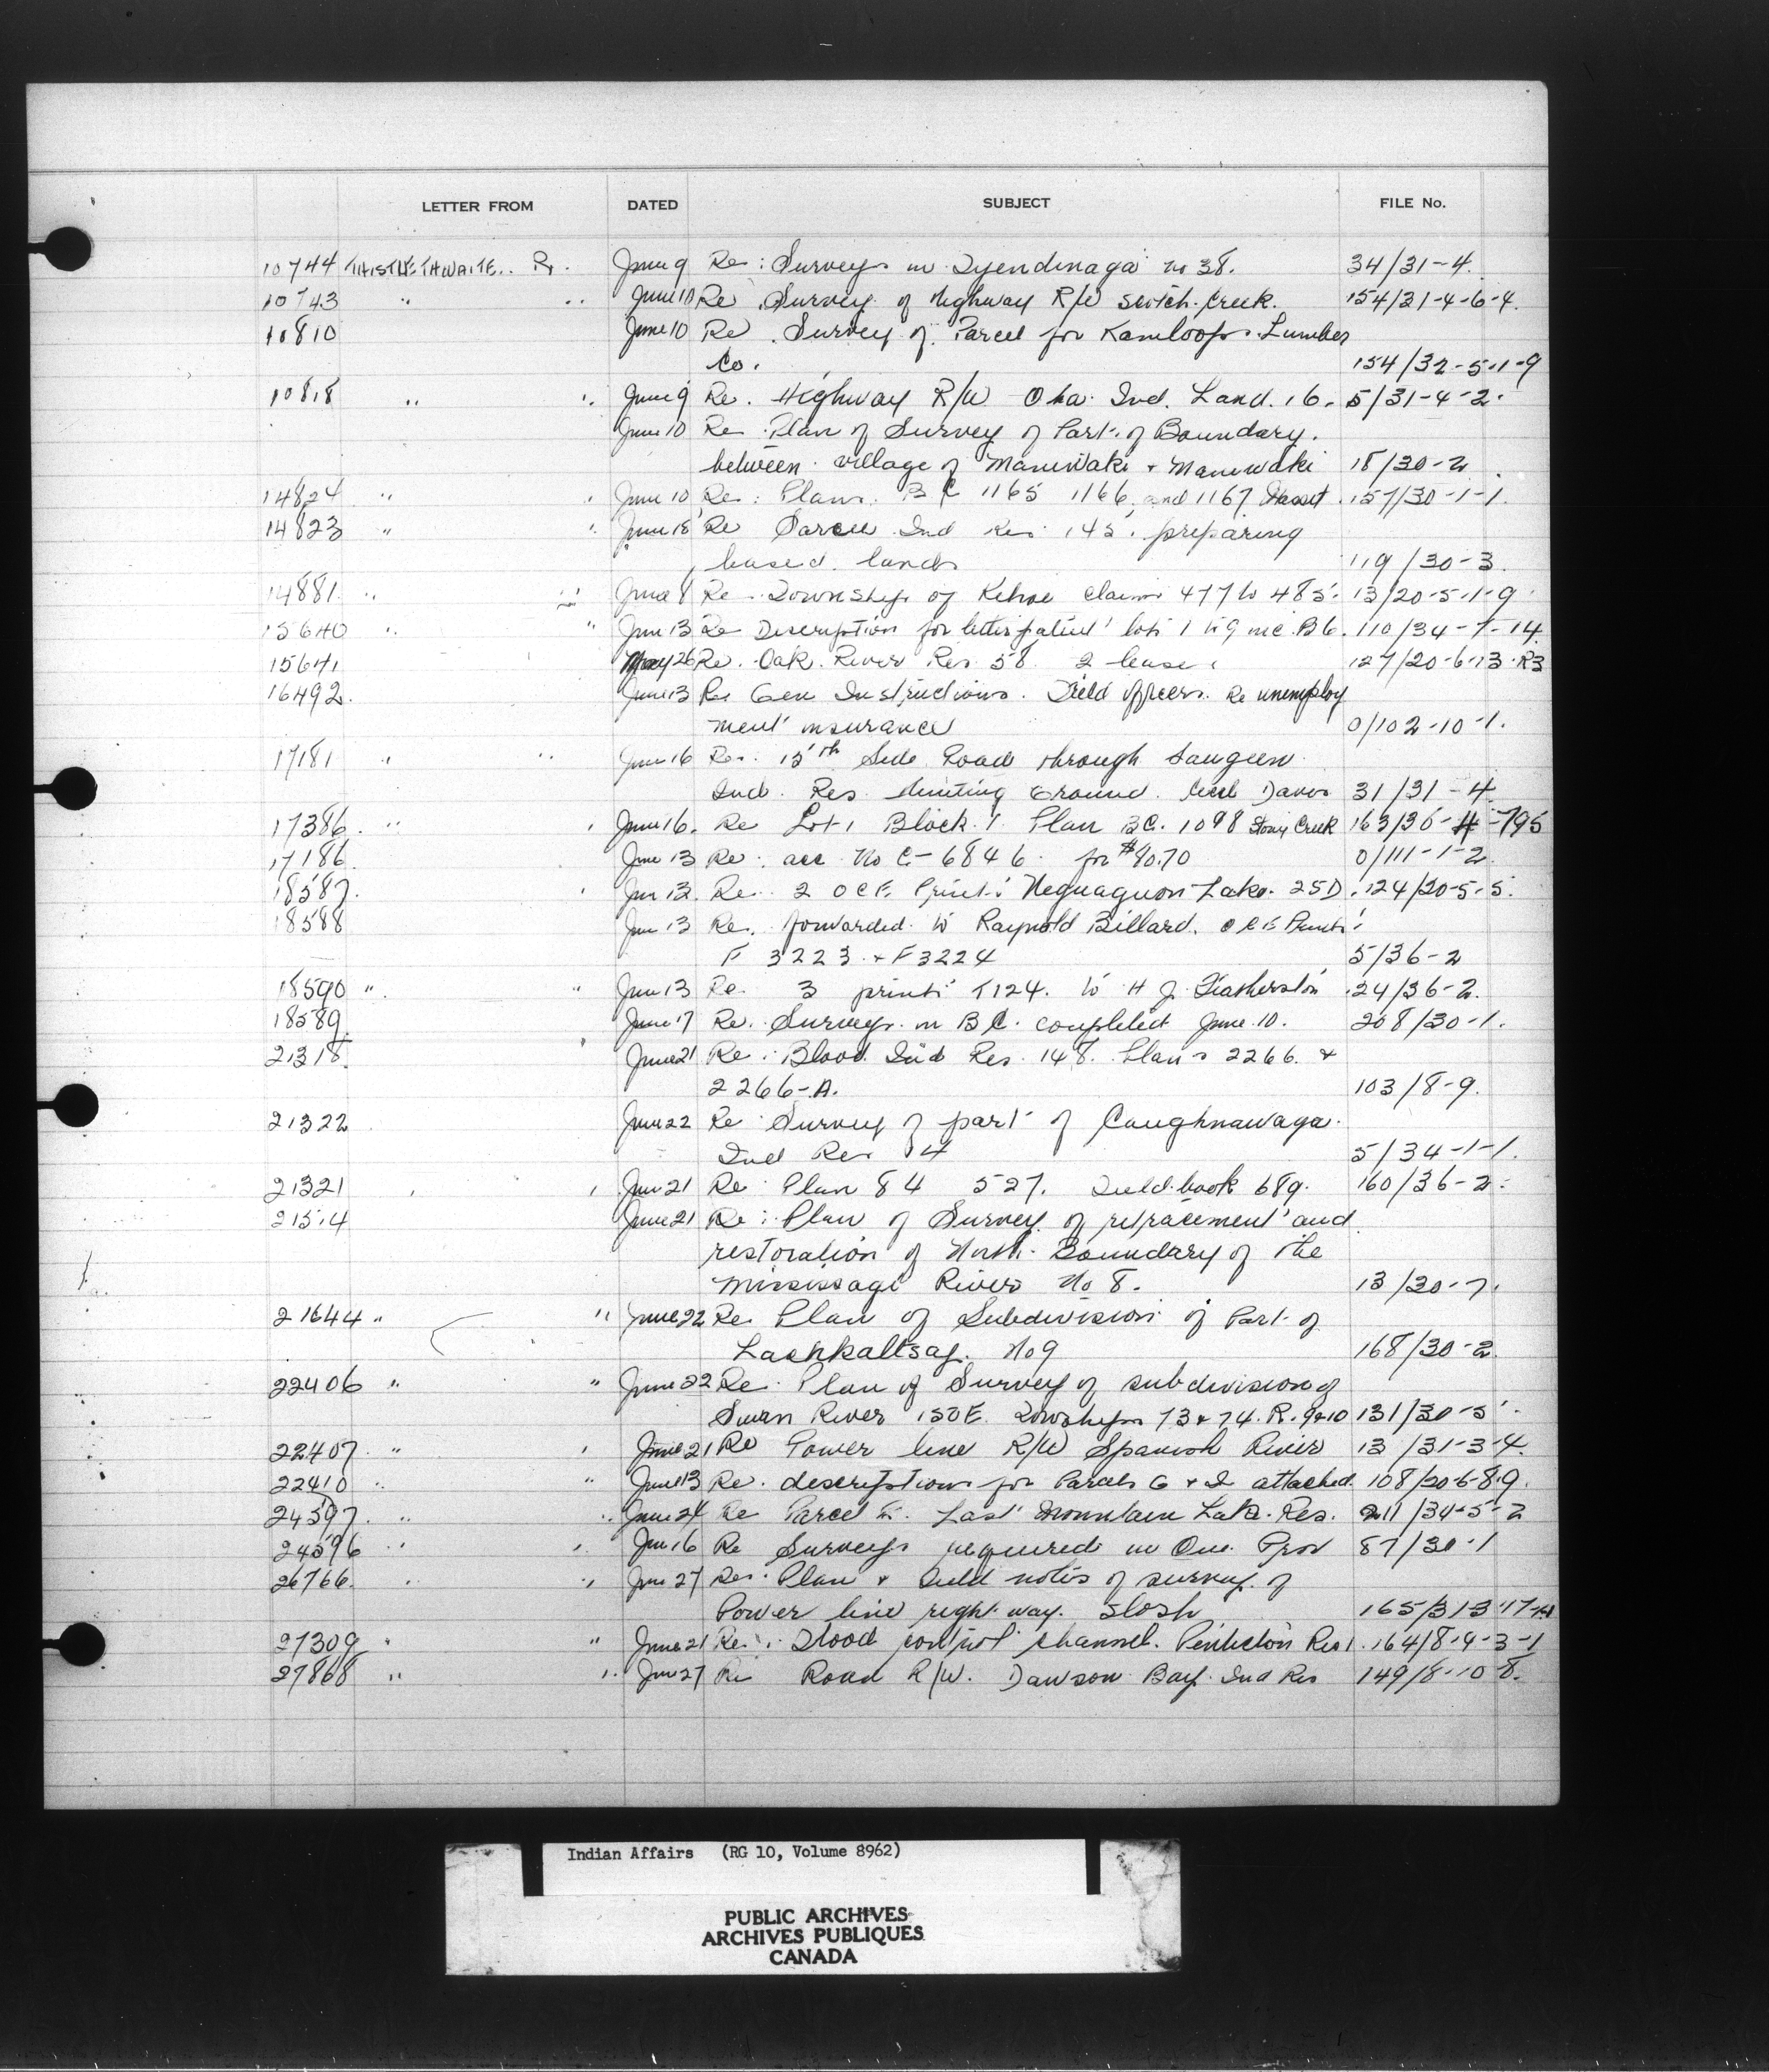 LETTER FROM DATED SUBJECT FILE No.
10744 THISTLETHWAITE.. R. June 9 Re: Surveys in Tyendinaga no 38. 34/31-4.
10743 " " June 10 Re Survey of Highway R/W Scotch Creek. 154/31-4-6-4.
10810 June 10 Re Survey of Parcel for Kamloops Lumber
Co. 154/32-5-1-9
10818 " " June 9 Re. Highway R/W Oka Ind. Land. 16. 5/31-4-2.
June 10 Re Plan of Survey of Part of Boundary.
between village of Maniwaki + Maniwaki 18/30-2
14824 " " June 10 Re: Plans. B C 1165 1166, and 1167 Masset 157/30-1-1.
14823 " " June 18 Re Sarcee Ind Res 145. preparing
leased lands 119/30-3.
14881 " " June 8 Re Township of Kehoe claims 477 to 485. 13/20-5-1-9
15640 " " June 13 Re Description for letters patent lots 1 to 9 inc. B6. 110/34-7-14.
15641 May 26 Re. Oak River Res 58 2 lease 127/20-6-13-R3
16492. June 13 Re Gen Instructions. Field Officers. Re unemploy
ment insurance 0/102-10-1.
17181 " " June 16 Re. 15th Side Road through Saugeen
Ind. Res Hunting Ground. Cecil Davis 31/31-4.
17386 " " June 16. Re Lot 1 Block 1 Plan BC. 1098 Stony Creek 163/36-4-795
17186 June 13 Re: acc No C-6846. for $90.70 0/111-1-2.
18587. " June 12. Re 2 OCE Prints Neguaguon Lake. 25D. 124/20-5-5.
18588 June 13 Re. forwarded to Raynold Billard. OCE Prints
F 3223 + F3224 5/36-2
18590 " " June 13 Re. 3 prints T124. to H J. Featherston 24/36-2.
18589. June 17 Re. Surveys in BC. completed June 10. 208/30-1.
21318. June 21 Re: Blood Ind Res. 148. Plans 2266. +
2266-A. 103/8-9.
21322 June 22 Re Survey of part of Caughnawaga.
Ind Res 14 5/34-1-1.
21321 " " June 21 Re: Plan 84 527. Field book 689. 160/36-2.
21514 June 21 Re: Plan of Survey of retracement and
restoration of North Boundary of the
Mississagi River No 8. 13/30-7.
21644 " " June 22 Re Plan of Subdivision of Part of
Lachkaltsap. No 9 168/30-2.
22406 " " June 22 Re. Plan of Survey of subdivision of
Swan River 150E. Townships 73 + 74. R. 9+10 131/30-5.
22407. " " June 21 Re Power line R/W Spanish River 13/31-3-4.
22410 " " June 13 Re. descriptions for Parcels G + I attached. 108/20-6-8-9.
24597. " " June 24 Re Parcel Last Mountain Lake. Res. 211/34-5-2
24596 " " June 16 Re Surveys required in Que. Prov 87/30-1
26766. " " June 27 Re: Plan + Field notes of survey of
Power line right way. Slosh
27309 " " June 21 Re. Flood control channel. Penticton Res 1. 164/8-9-3-1
27868 " " June 27 Re Road R/W. Dawson Bay Ind Res 149/8-10-8.
Indian Affairs (RG 10, Volume 8962)
PUBLIC ARCHIVES
ARCHIVES PUBLIQUES
CANADA